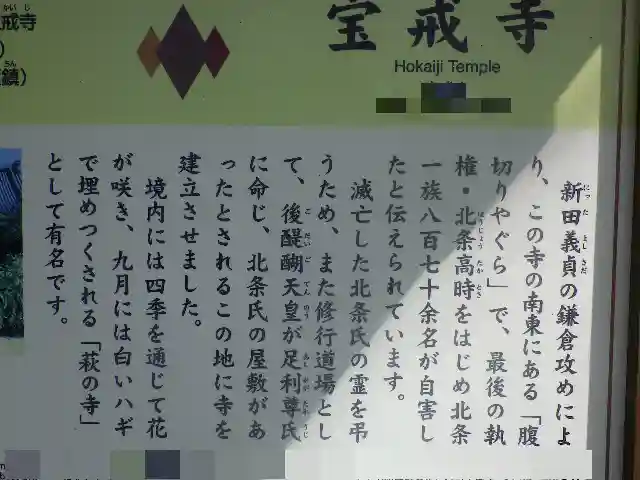 宝戒寺
Hokaiji Temple
新田義貞の鎌倉攻めによ
り、この寺の南東にある「腹
切りやぐら」で、最後の執
権・北条高時をはじめ北条
一族八百七十余名が自害し
たと伝えられています。
滅亡した北条氏の霊を弔
うため、また修行道場とし
て、後醍醐天皇が足利尊氏
に命じ、北条氏の屋敷があ
ったとされるこの地に寺を
建立させました。
境内には四季を通じて花
が咲き、九月には白いハギ
で埋めつくされる「萩の寺」
として有名です。
戒寺
鎮）